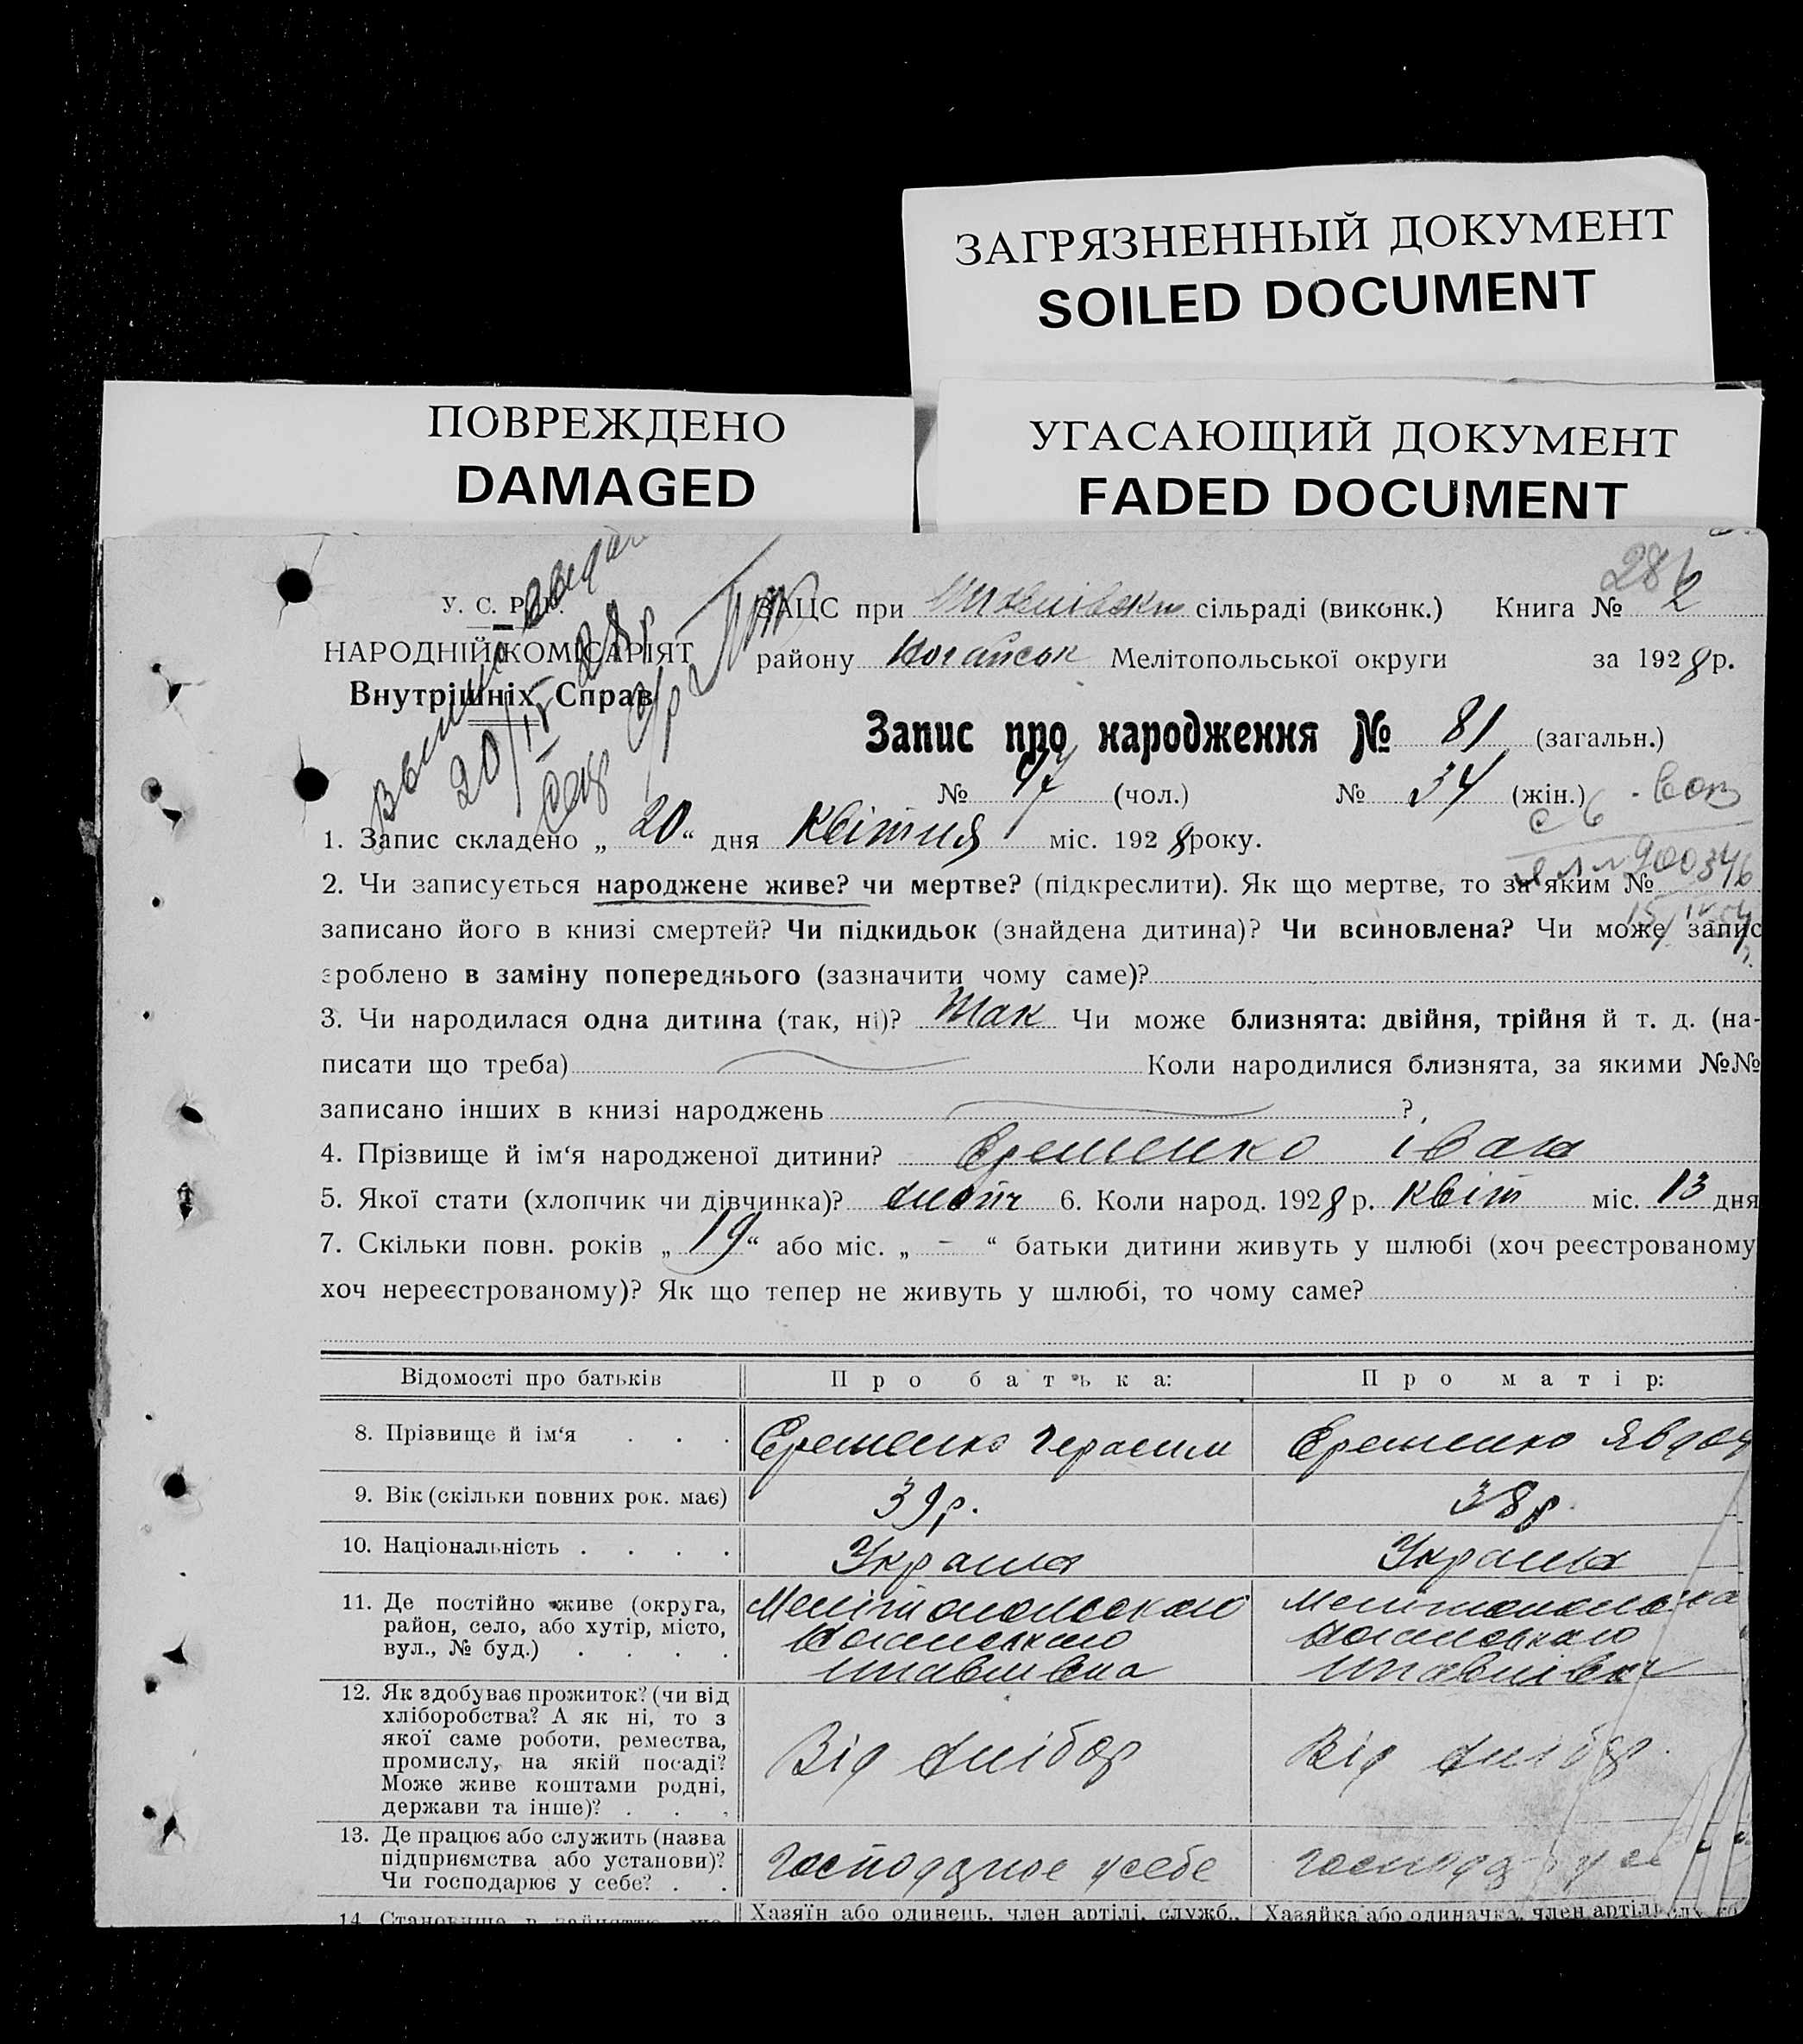 ЗАГРЯЗНЕННЫЙ ДОКУМЕНТ
SOILED DOCUMENT
ПОВРЕЖДЕНО
DAMAGED
УГАСАЮЩИЙ ДОКУМЕНТ
FADED DOCUMENT
У. С. Р. Р.
НАРОДНІЙ КОМІСАРІЯТ
Внутрішніх Справ
20/IV 28 г
ЗАЦС при сільраді (виконк.) Книга № 2
району Ногайськ Мелітопольської округи за 1928 р.
Запис про народження № 81 (загальн.)
№ 47 (чол.) № 34 (жін.)
1. Запис складено „ 20 “ дня Квітня міс. 1928 року.
900346
2. Чи записується народжене живе? чи мертве? (підкреслити). Як що мертве, то за яким №
записано його в книзі смертей? Чи підкидьок (знайдена дитина)? Чи всиновлена? Чи може запис
зроблено в заміну попереднього (зазначити чому саме)?
3. Чи народилася одна дитина (так, ні)? Так Чи може близнята: двійня, трійня й т. д. (на-
писати що треба) Коли народилися близнята, за якими №№
записано інших в книзі народжень ?
4. Прізвище й ім‘я народженої дитини? Єременко Іван
5. Якої стати (хлопчик чи дівчинка)? хлопч 6. Коли народ. 1928 р. квіт міс. 13 дня
7. Скільки повн. років „ 19 “ або міс. „ - “ батьки дитини живуть у шлюбі (хоч реєстрованому
хоч нереєстрованому)? Як що тепер не живуть у шлюбі, то чому саме?
Відомості про батьків Про батька: Про матір:
8. Прізвище й ім‘я . . . Єременко Герасим Єременко Явдох
9. Вік (скільки повних рок. має) 39 р. 38 р.
10. Національність . . . . Украінa Украінa
11. Де постійно живе (округа,
район, село, або хутір, місто,
вул., № буд.) . . . .
Мелітопольского
Ногайського
12. Як здобуває прожиток? (чи від
хліборобства? А як ні, то з
якої саме роботи, ремества,
промислу, на якій посаді?
Може живе коштами родні,
держави та інше)? . . .
Від хлібор Від хлібор.
13. Де працює або служить (назва
підприємства або установи)?
Чи господарює у себе? . .
Господарює усебе господар у се
14. Становище в занятті, що
Хазяїн або одинець, член артілі, служб., Хазяйка або одиначка, член артілі, служб